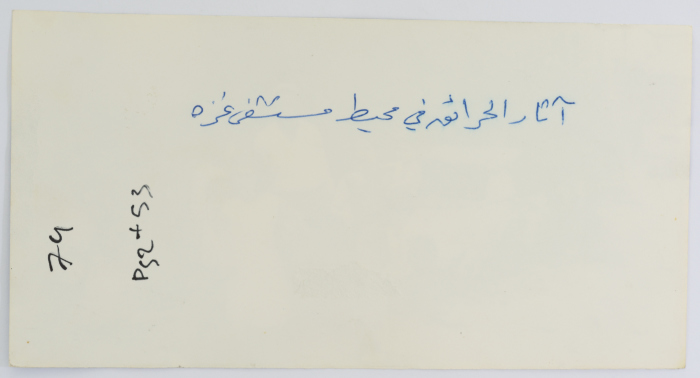 آثار الحرائق في محيط مستشفى غزه
Pg2 + 53
74